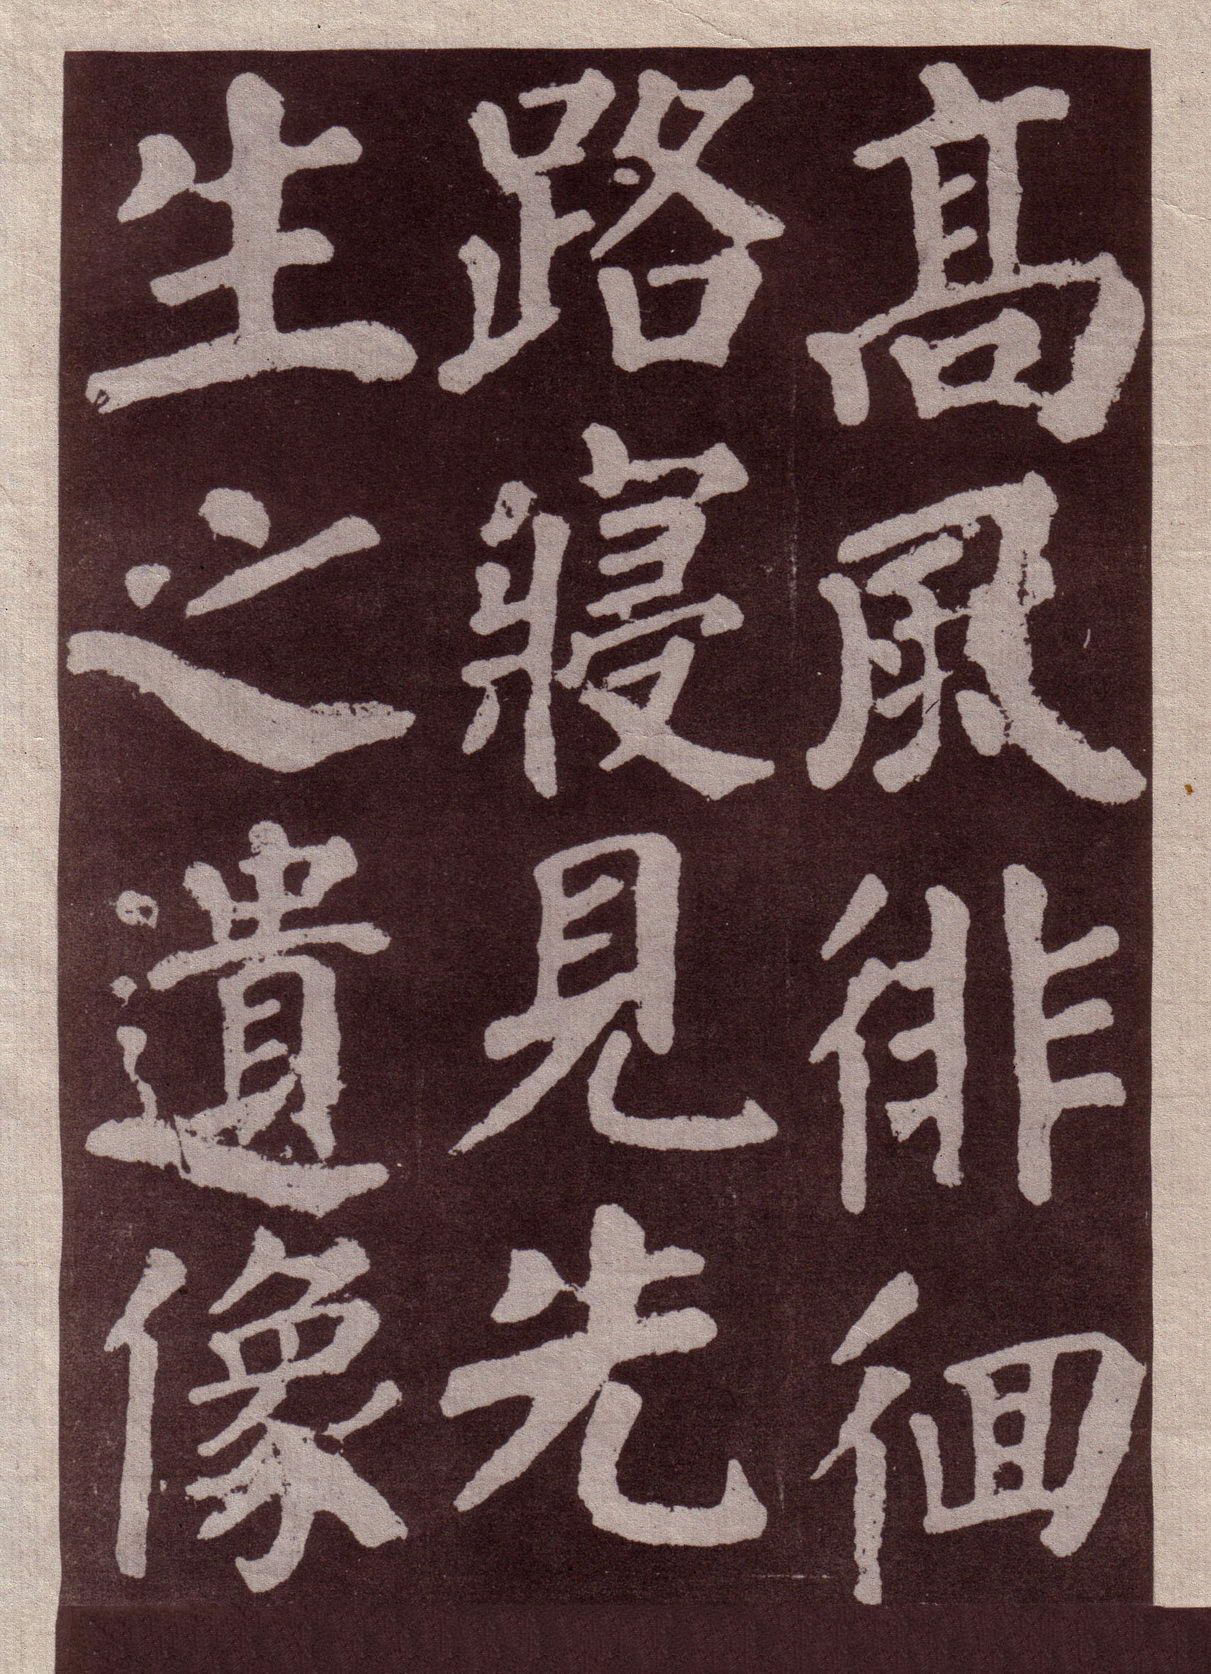 髙風徘徊
路寢見先
生之遺像